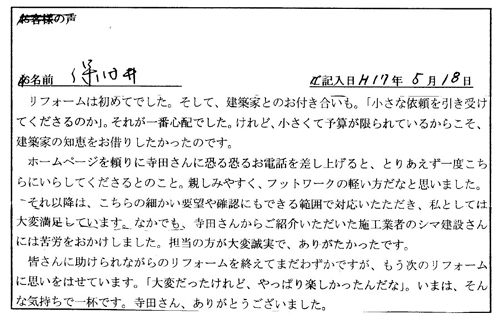 お客様の声
お名前 保田井 ご記入日 H17年 5月 18日
リフォームは初めてでした。そして、建築家とのお付き合いも。「小さな依頼を引き受け
てくださるのか」。それが一番心配でした。けれど、小さくて予算が限られているからこそ、
建築家の知恵をお借りしたかったのです。
ホームページを頼りに寺田さんに恐る恐るお電話を差し上げると、とりあえず一度こち
らにいらしてくださるとのこと。親しみやすく、フットワークの軽い方だなと思いました。
それ以降は、こちらの細かい要望や確認にもできる範囲で対応いたただき、私としては
大変満足しています。なかでも、寺田さんからご紹介いただいた施工業者のシマ建設さん
には苦労をおかけしました。担当の方が大変誠実で、ありがたかったです。
皆さんに助けられながらのリフォームを終えてまだわずかですが、もう次のリフォーム
に思いをはせています。「大変だったけれど、やっぱり楽しかったんだな」。いまは、そん
な気持ちで一杯です。寺田さん、ありがとうございました。